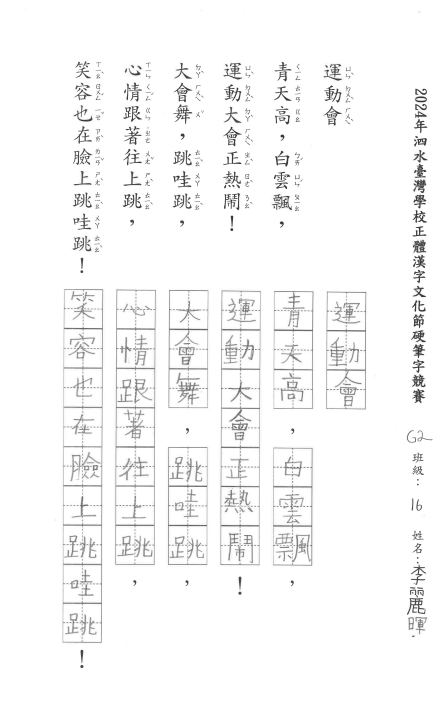 2024年泗水臺灣學校正體漢字文化節硬筆字競賽
G2 班級： 16 姓名：李麗暉
運動會
青天高，白雲飄，
運動大會正熱鬧！
大會舞，跳哇跳，
心情跟著往上跳，
笑容也在臉上跳哇跳！
運動會
青天高，白雲飄，
運動大會正熱鬧！
大會舞，跳哇跳，
心情跟著往上跳，
笑容也在臉上跳哇跳！